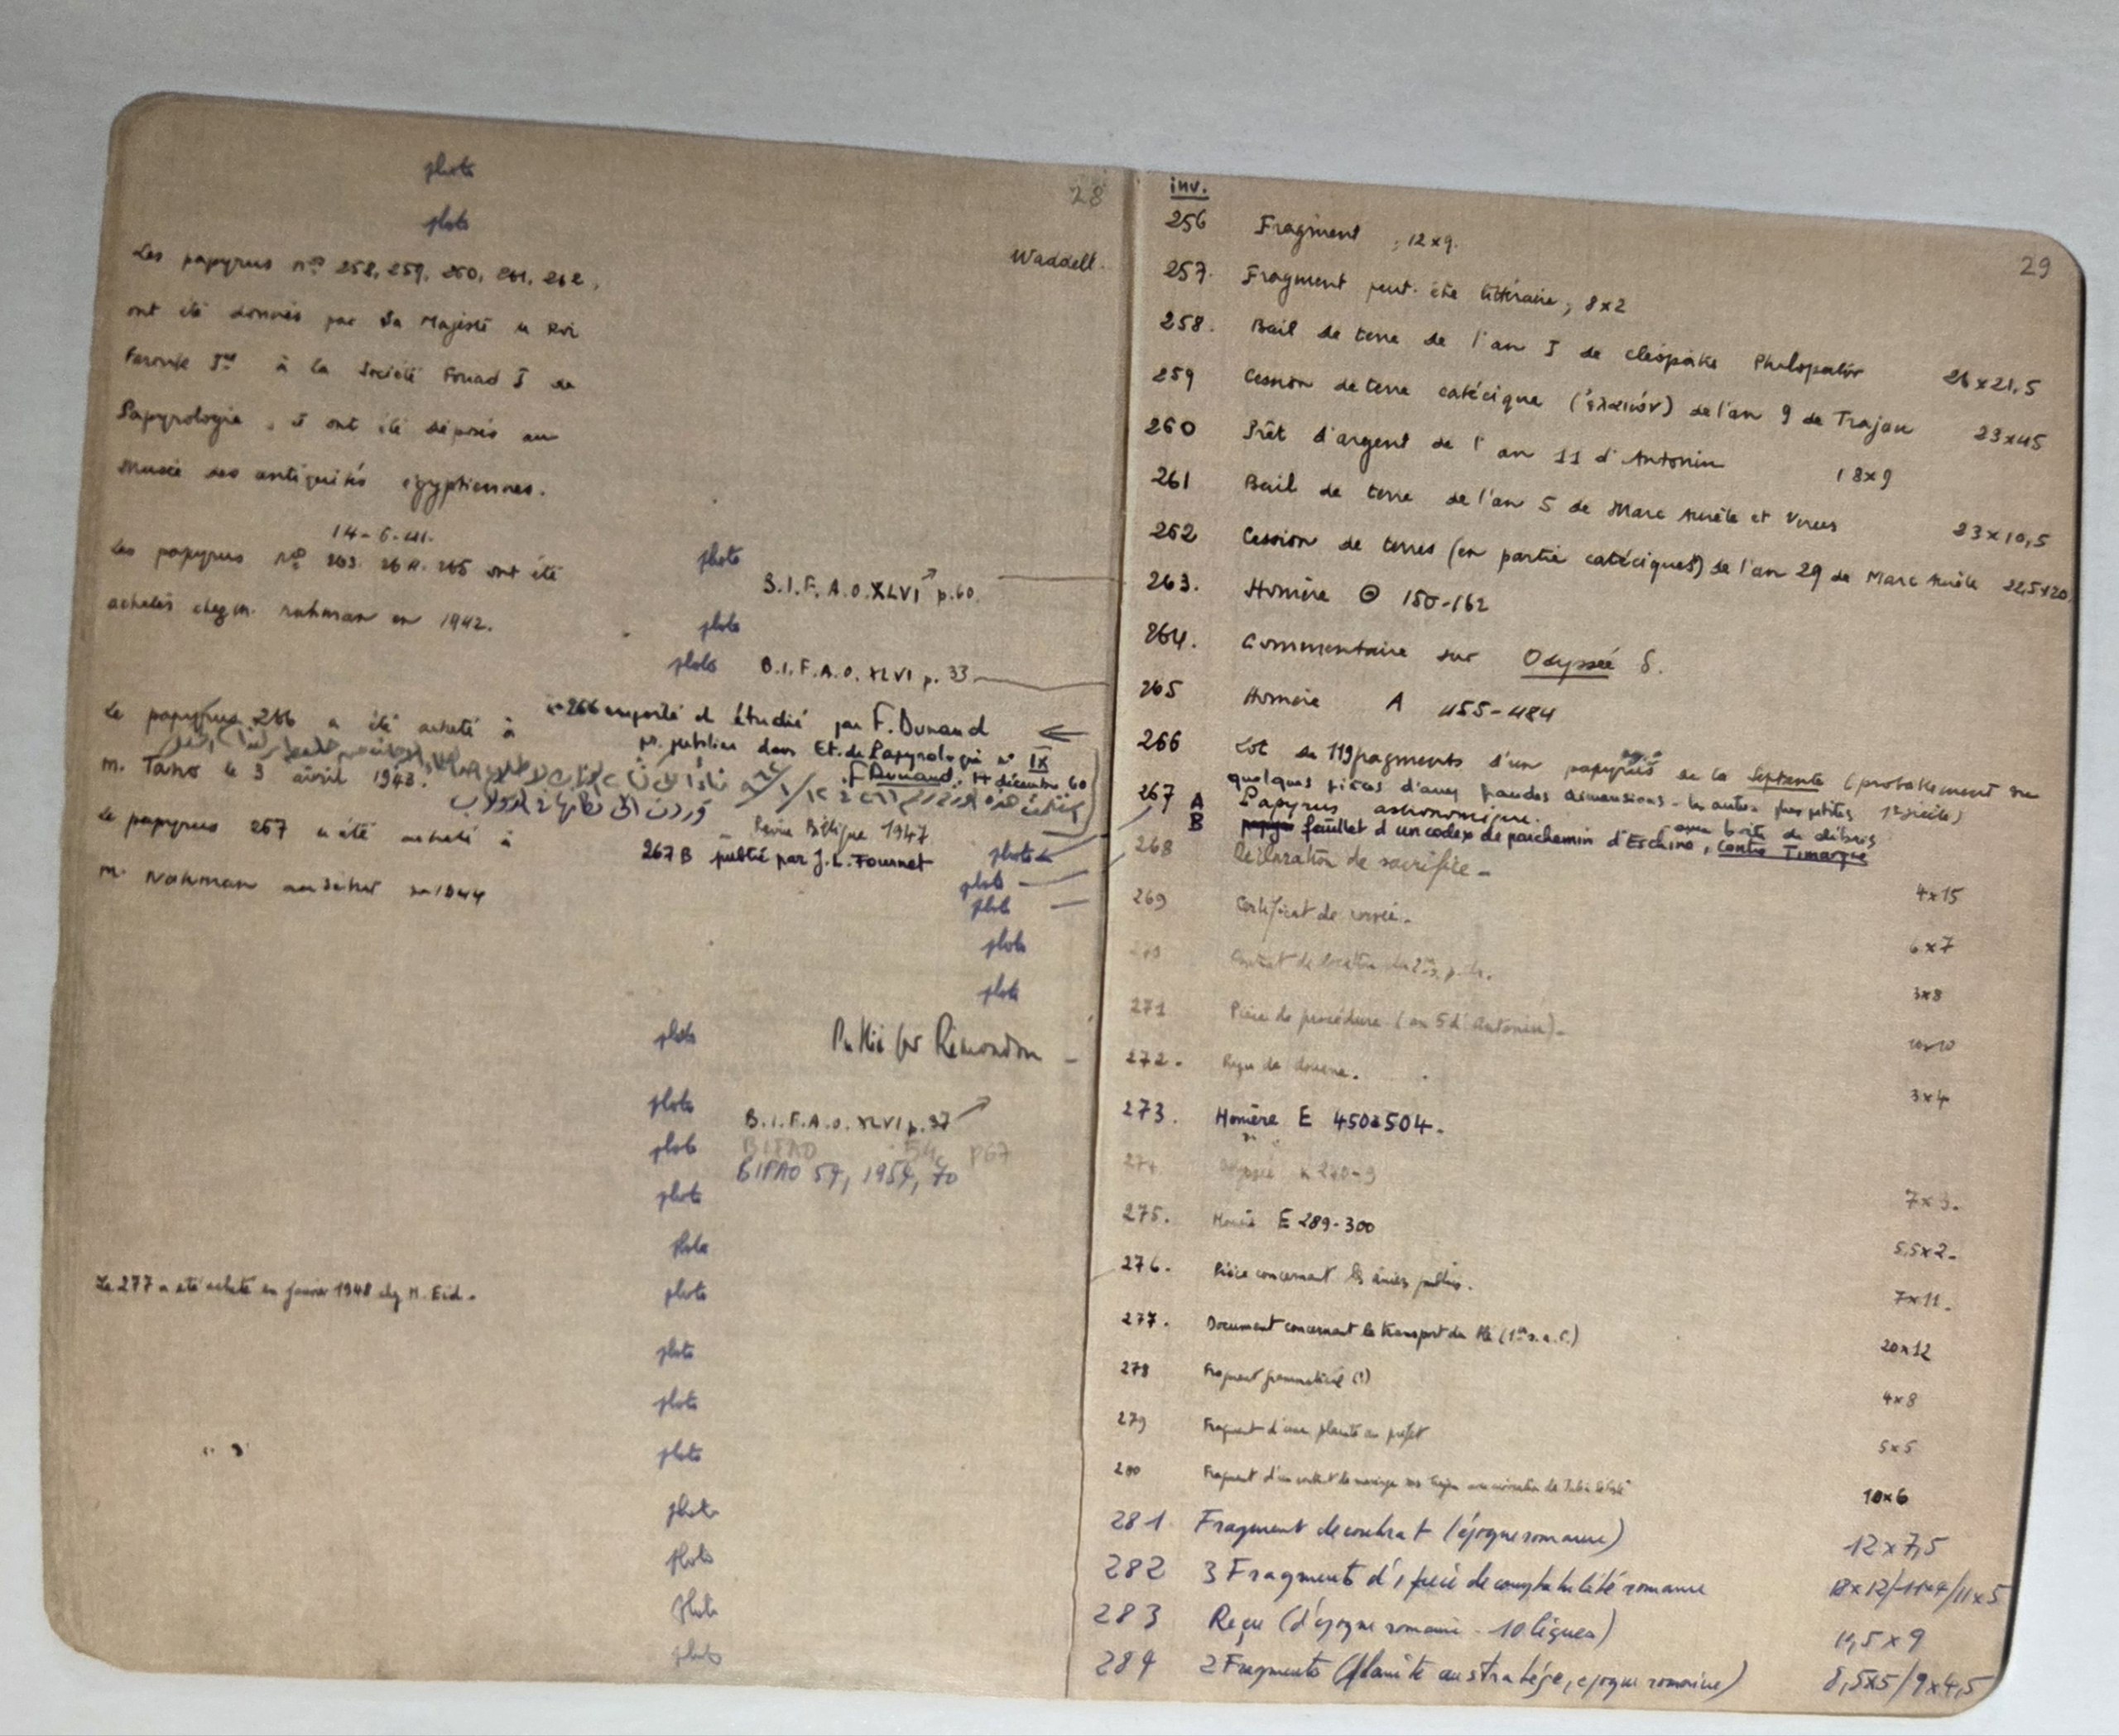 28
photo
photo
Waddell.
Les papyrus nos 258, 259, 260, 261, 262,
ont été donnés par Sa Majesté le Roi
Farouk Ier à la Société Fouad I de
Papyrologie, et ont été déposés au
Musée des antiquités égyptiennes.
14-6-41.
Les papyrus nos 263. 264. 265 ont été
achetés chez M. Nahman en 1942.
photo
B.I.F.A.O. XLVI p.60.
photo
photo B.I.F.A.O. XLVI p. 33
Le papyrus 266 a été acheté à
M. Tano le 3 avril 1943.
266 emporté et étudié par F. Dunand
pr. publier dans Et. de Papyrologie n° IX
F. Dunand, 14 décembre 60
Le papyrus 267 a été acheté à
M. Nahman 1944
Revue Belgique 1947
267 B publié par J.L. Fournet
photo
photo
photo
photo
photo
photo
Publié par Rémondon
photo
B.I.F.A.O. XLVI p.37
photo
BIFAO 54, p67
BIFAO 54, 1954, 70
photo
Photo
Le 277 a été acheté en janvier 1948 chez M. Eid.
photo
photo
photo
photo
photo
Photo
Photo
photo
29
inv.
256 Fragment, 12x9.
257. Fragment peut-être littéraire, 8x2
258. Bail de terre de l'an I de Cléopâtre Philopator 26x21,5
259 Cession de terre catécique de l'an 9 de Trajan 23x45
260 Prêt d'argent de l'an 11 d'Antonin 18x9
261 Bail de terre de l'an 5 de Marc Aurèle et Verus 23x10,5
262 Cession de terres (en partie catéciques) de l'an 29 de Marc Aurèle 22,5x20
263. Homère Θ 150-162
264. Commentaire sur Odyssée δ.
265 Homère A 455-484
266 Lot de 119 fragments d'un papyrus de la Septante (probablement du
quelques pièces d'assez grandes dimensions - les autres plus petites 1er siècle)
avec boîte de débris
267 A Papyrus astronomique.
B feuillet d'un codex de parchemin d'Eschine, Contre Timarque
268 Déclaration de sacrifice - 4x15
269 Certificat de corvée. 6x7
Contrat de location du 2me s. p. 3x8
271 Pièce de procédure (an 5 d'Antonin)- 10x10
272. Reçu de douane. 3x4
273. Homère E 450 à 504.
274 Odyssée 240-9 7x3.
275. Homère E 289-300 5,5x2.
276. Pièce concernant les âniers publics. 7x11.
277. Document concernant le transport du blé (1er s. a. C.) 20x12
278 Fragment grammatical (?) 4x8
279 Fragment d'une plainte au préfet 5x5
280 Fragment d'un contrat de mariage 10x6
281 Fragment de contrat (époque romaine) 12x7,5
282 3 Fragments d'1 pièce de comptabilité romaine 18x12/11x4/11x5
283 Reçu (d'époque romaine - 10 lignes) 11,5x9
284 2 Fragments (plainte au stratège, époque romaine) 8,5x5/9x4,5